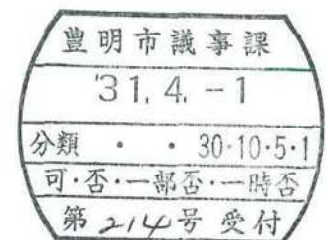 豊明市議事課
'31.4.-1
分類 ・ ・ 30・10・5・1
可・否・一部否・一時否
第214号受付